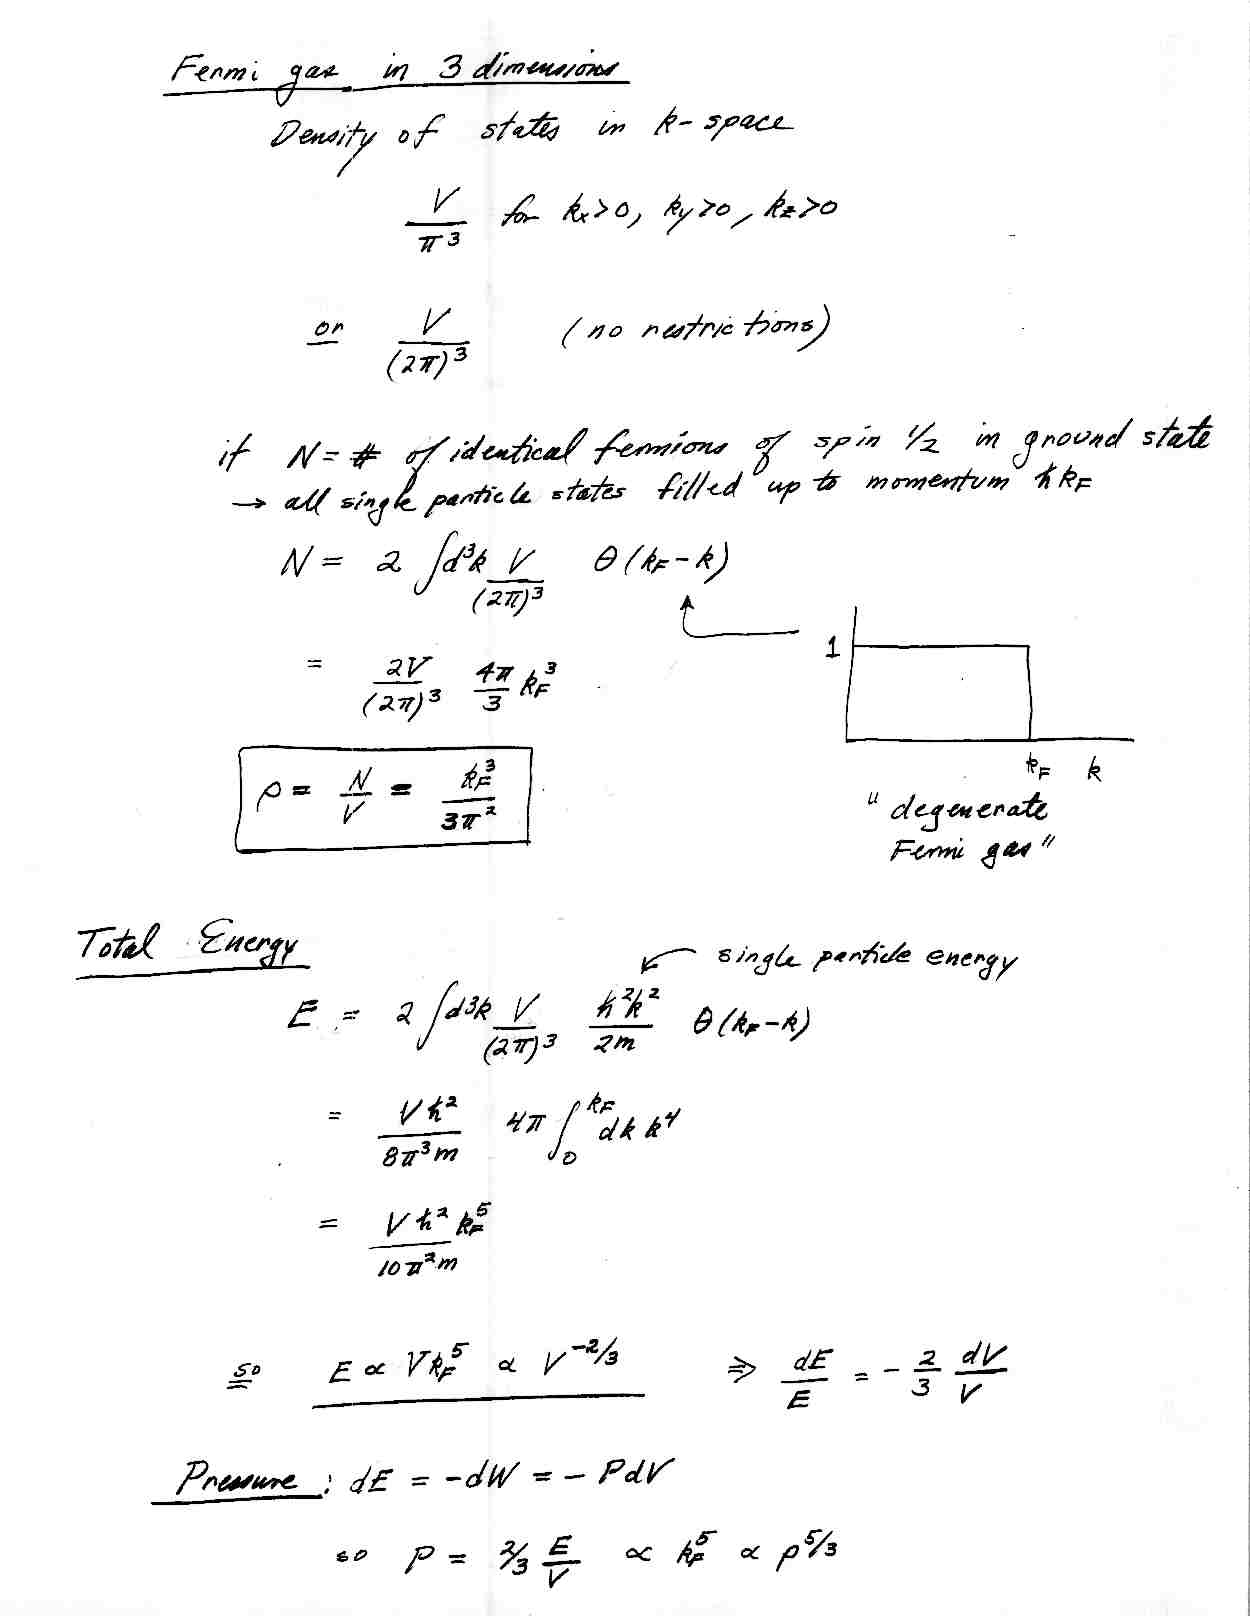 Fermi gas in 3 dimensions
Density of states in k-space
V/π³ for kx>0, ky>0, kz>0
or V/(2π)³ (no restrictions)
if N = # of identical fermions of spin 1/2 in ground state
→ all single particle states filled up to momentum ħkF
N = 2 ∫d³k V/(2π)³ θ(kF-k)
= 2V/(2π)³ 4π/3 kF³
1
ρ = N/V = kF³/3π²
kF k
"degenerate
Fermi gas"
Total Energy
single particle energy
E = 2 ∫d³k V/(2π)³ ħ²k²/2m θ(kF-k)
= Vħ²/8π³m 4π ∫₀^kF dk k⁴
= Vħ²kF⁵/10π²m
so E ∝ VkF⁵ ∝ V^-2/3 ⇒ dE/E = -2/3 dV/V
Pressure: dE = -dW = - PdV
so P = 2/3 E/V ∝ kF⁵ ∝ ρ^5/3